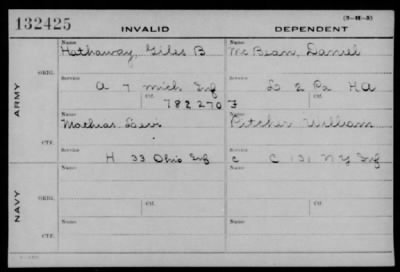 132425
INVALID DEPENDENT
(3-H-3)
ARMY
ORIG.
Name Hathaway, Giles B Name McBean, Daniel
Service A 7 Mich Inf Service L 2 Pa HA
Co. 782270 Co.
CTF.
Name Mathias Levi Name Pitcher William
Service H 33 Ohio Inf C Service C 131 N Y Inf
NAVY
ORIG.
Name Name
Service Co. Service Co.
CTF.
Name Name
Service Service